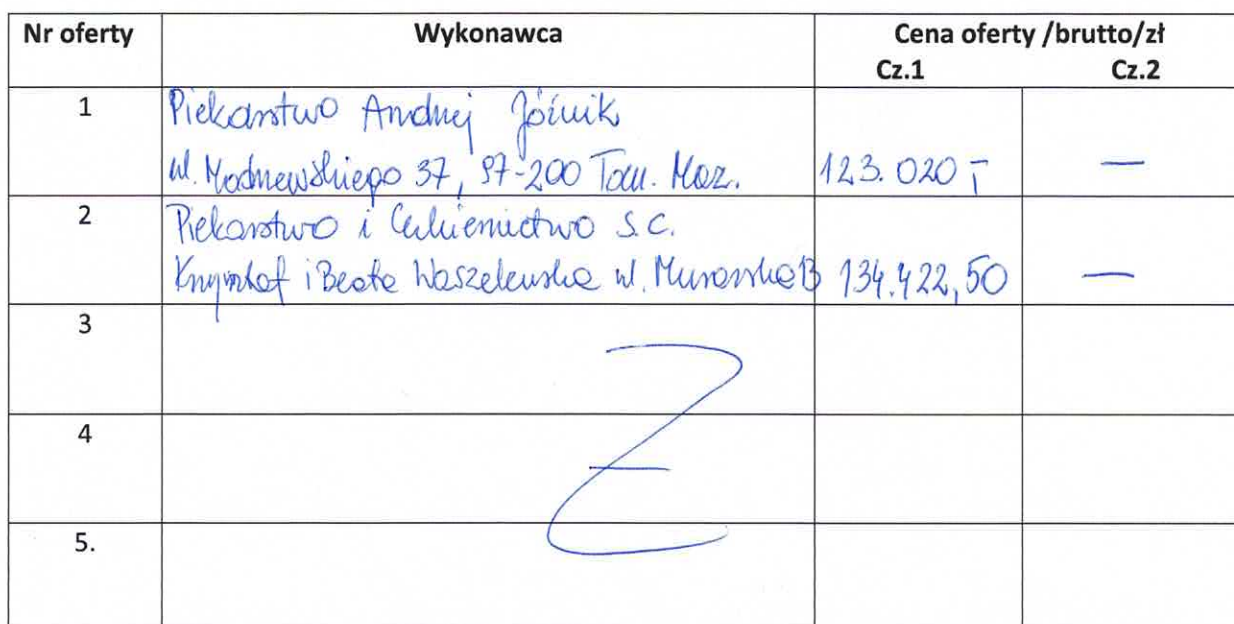 Nr oferty Wykonawca Cena oferty /brutto/zł
Cz.1 Cz.2
1 Piekarstwo Andrzej Jóźwik
ul. Modrzewskiego 37, 97-200 Tom. Maz. 123.020 —
2 Piekarstwo i Cukiernictwo S.C.
Krzysztof i Beata Waszelewska ul. Murarska 13 134.422,50 —
3
4
5.